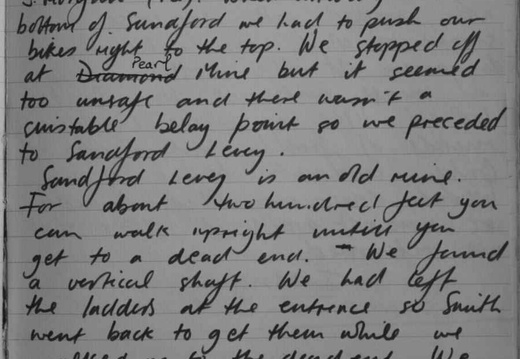 bottom of Sandford we had to push our
bikes right to the top. We stopped off
at Diamond Pearl Mine but it seemed
too unsafe and there wasn't a
suistable belay point so we preceded
to Sandford Levey.
Sandford Levey is an old mine.
For about two hundred feet you
can walk upright untill you
get to a dead end. - We found
a vertical shaft. We had left
the ladders at the entrance so Smith
went back to get them while we
to the dead end. We